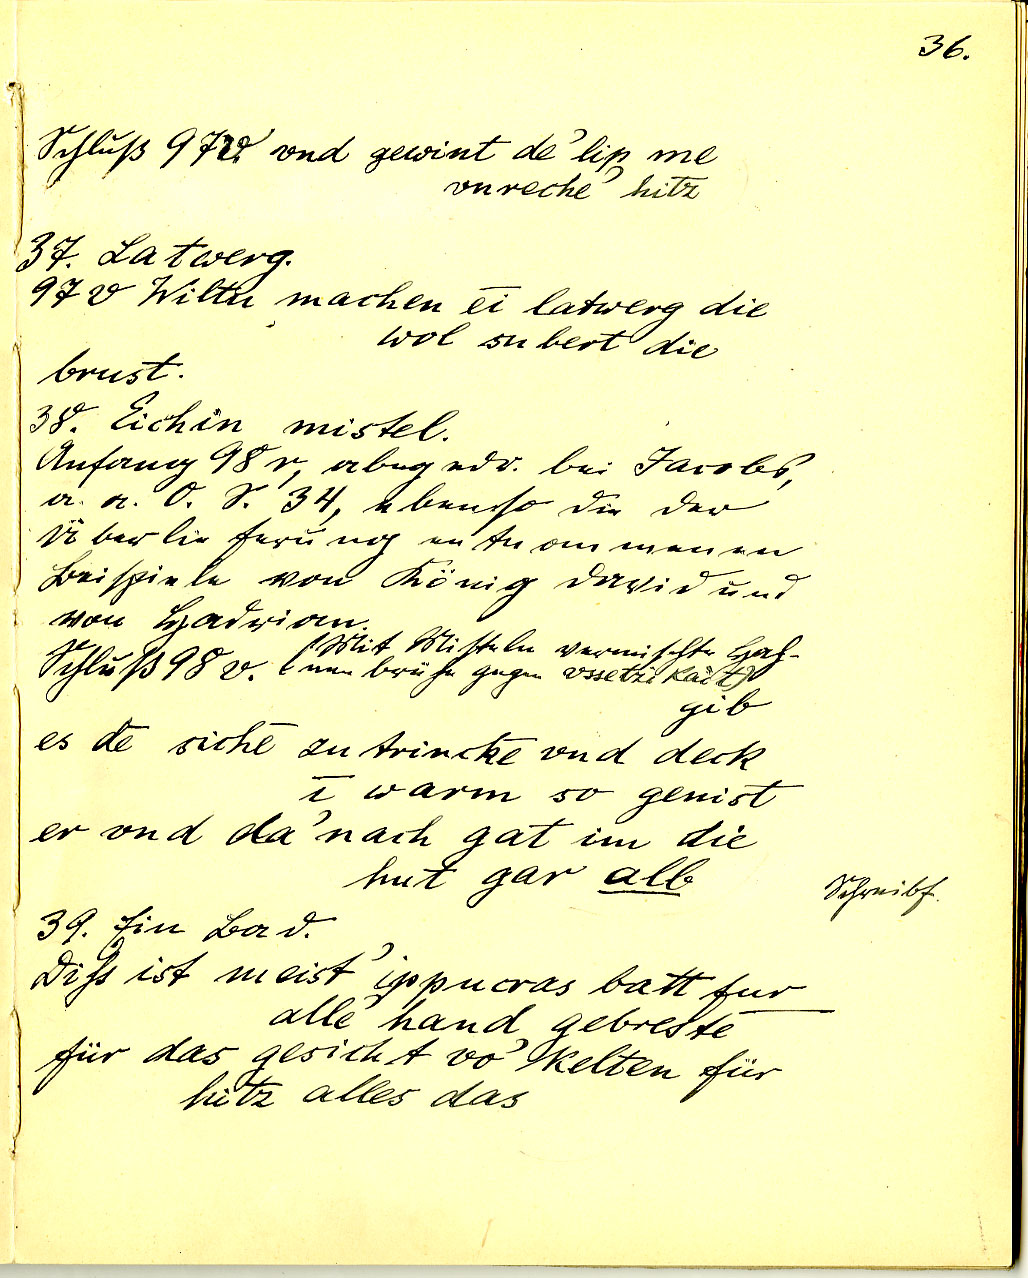 36.
Schluß 97v vnd gewint de' lip me
vnreche' hitz
37. Latwerg.
97v Wiltu machen ēi latwerg die
wol subert die
brust.
38. Eichin mistel.
Anfang 98r, abgedr. bei Jacobs,
a. a. O. S. 34, ebenso die der
Überlieferung entnommenen
Beispiele von König David und
von Hadrian.
Schluß 98v. (Mit Misteln vermischte Hah-
nenbrühe gegen vssetzikāit)
gib
es dē sichē zu trinckē vnd deck
ī warm so genist
er vnd da' nach gat im die
hut gar alb
Schreibf.
39. Ein Bad.
Diss ist meist' ippucras batt fur
alle' hand gebrestē
für das gesicht vo' kelten für
hitz alles das